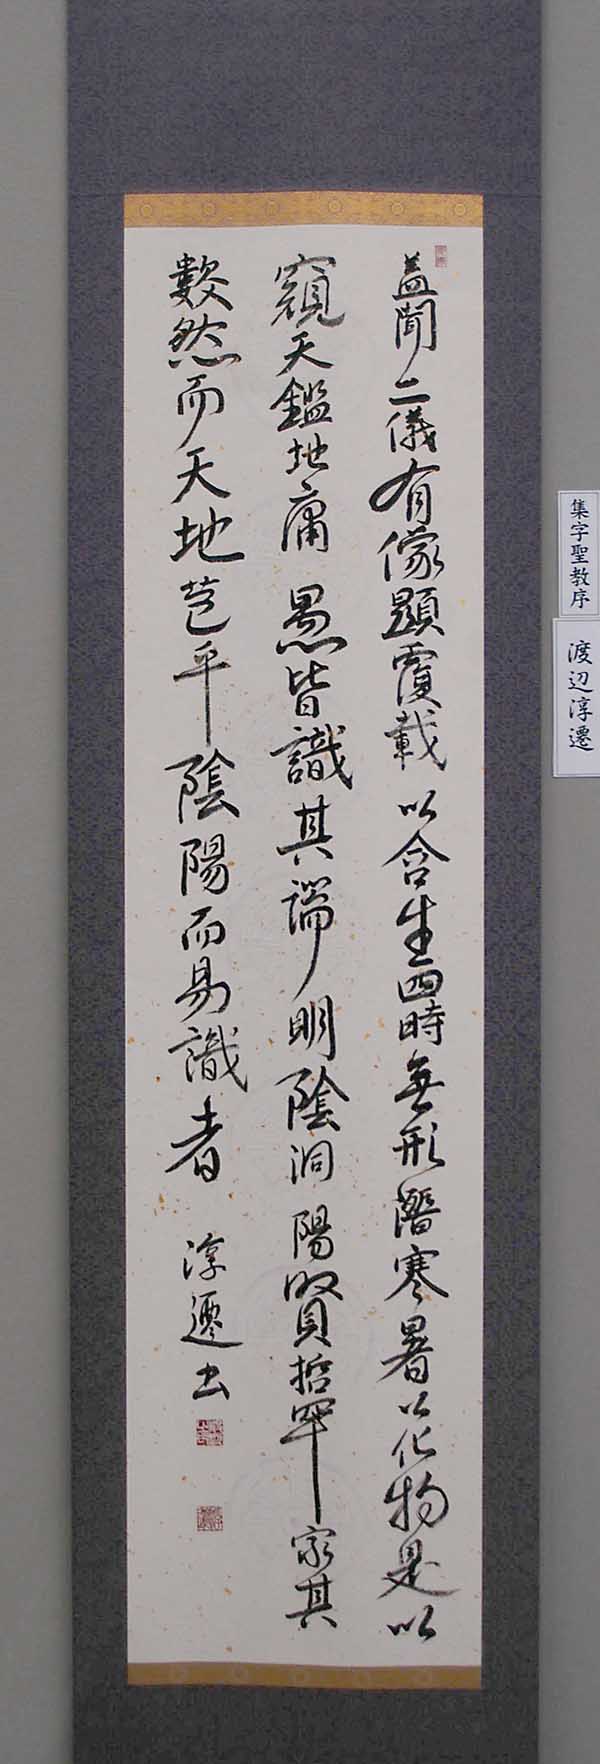 蓋聞二儀有像顯覆載以含生四時無形潛寒暑以化物是以
窺天鑑地庸愚皆識其端明陰洞陽賢哲罕窮其
數然而天地苞乎陰陽而易識者
淳遷書
集字聖教序
渡辺淳遷